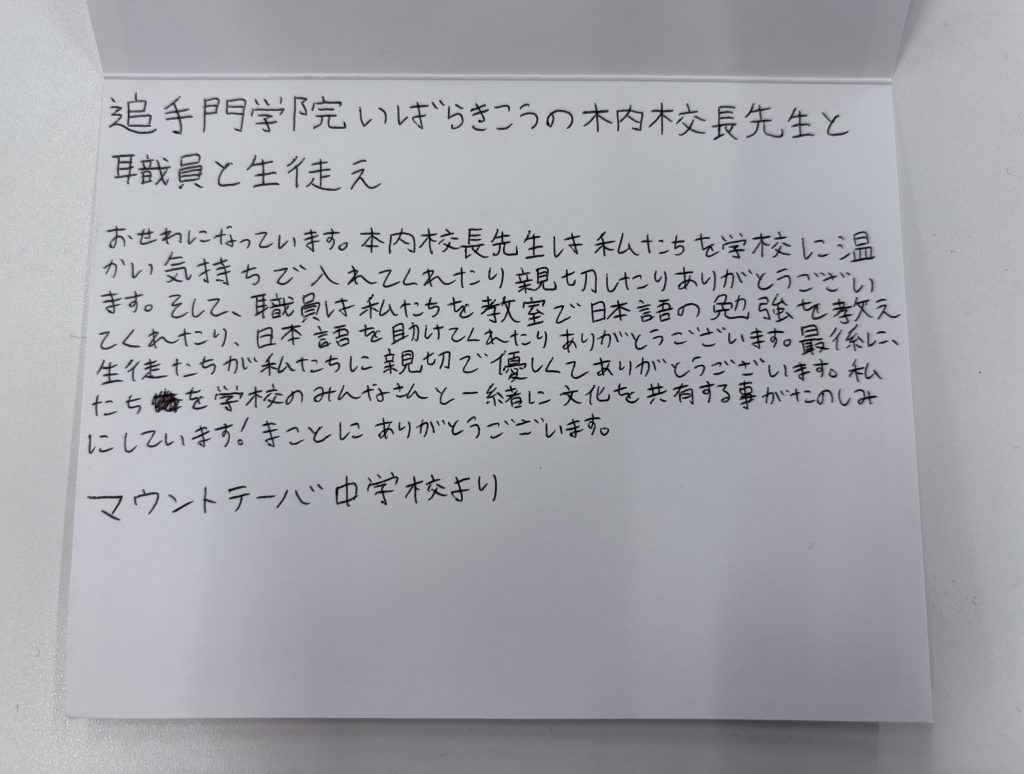 追手門学院いばらきこうの木内校長先生と
職員と生徒え
おせわになっています。本内校長先生は私たちを学校に温
かい気持ちで入れてくれたり親切したりありがとうござい
ます。そして、職員は私たちを教室で日本語の勉強を教え
てくれたり、日本語を助けてくれたりありがとうございます。最後に、
生徒たちが私たちに親切で優しくてありがとうございます。私
たちを学校のみんなさんと一緒に文化を共有する事がたのしみ
にしています!まことにありがとうございます。
マウントテーバ中学校より